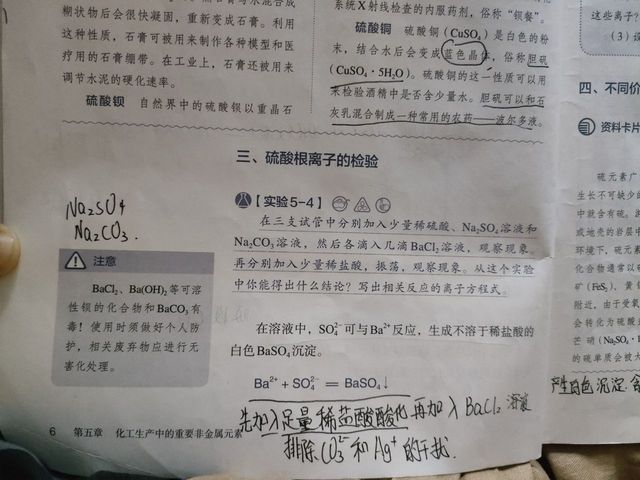 糊状物后会很快凝固，重新变成石膏。利用
这种性质，石膏可被用来制作各种模型和医
疗用的石膏绷带。在工业上，石膏还被用来
调节水泥的硬化速率。
硫酸钡 自然界中的硫酸钡以重晶石
系统X射线检查的内服药剂，俗称“钡餐”。
硫酸铜 硫酸铜(CuSO₄)是白色的粉
末，结合水后会变成蓝色晶体，俗称胆矾
(CuSO₄·5H₂O)。硫酸铜的这一性质可以用
来检验酒精中是否含少量水。胆矾可以和石
灰乳混合制成一种常用的农药——波尔多液。
三、硫酸根离子的检验
【实验5-4】
在三支试管中分别加入少量稀硫酸、Na₂SO₄溶液和
Na₂CO₃溶液，然后各滴入几滴BaCl₂溶液，观察现象。
再分别加入少量稀盐酸，振荡，观察现象。从这个实验
中你能得出什么结论？写出相关反应的离子方程式。
Na₂SO₄
Na₂CO₃.
注意
BaCl₂、Ba(OH)₂等可溶
性钡的化合物和BaCO₃有
毒！使用时须做好个人防
护，相关废弃物应进行无
害化处理。
在溶液中，SO₄²⁻可与Ba²⁺反应，生成不溶于稀盐酸的
白色BaSO₄沉淀。
Ba²⁺ + SO₄²⁻ = BaSO₄↓
先加入足量稀盐酸酸化再加入BaCl₂溶液
排除CO₃²⁻和Ag⁺的干扰.
6 第五章 化工生产中的重要非金属元素
这些离子
四、不同价
资料卡片
硫元素广
生长不可缺少的
中就含有硫。
或地壳的岩层中
环境下，硫元素
化合物通常以
矿(FeS₂)、黄
附近，由于受
会转化为硫酸
芒硝(Na₂SO₄·
的硫单质会被大
产生白色沉淀.